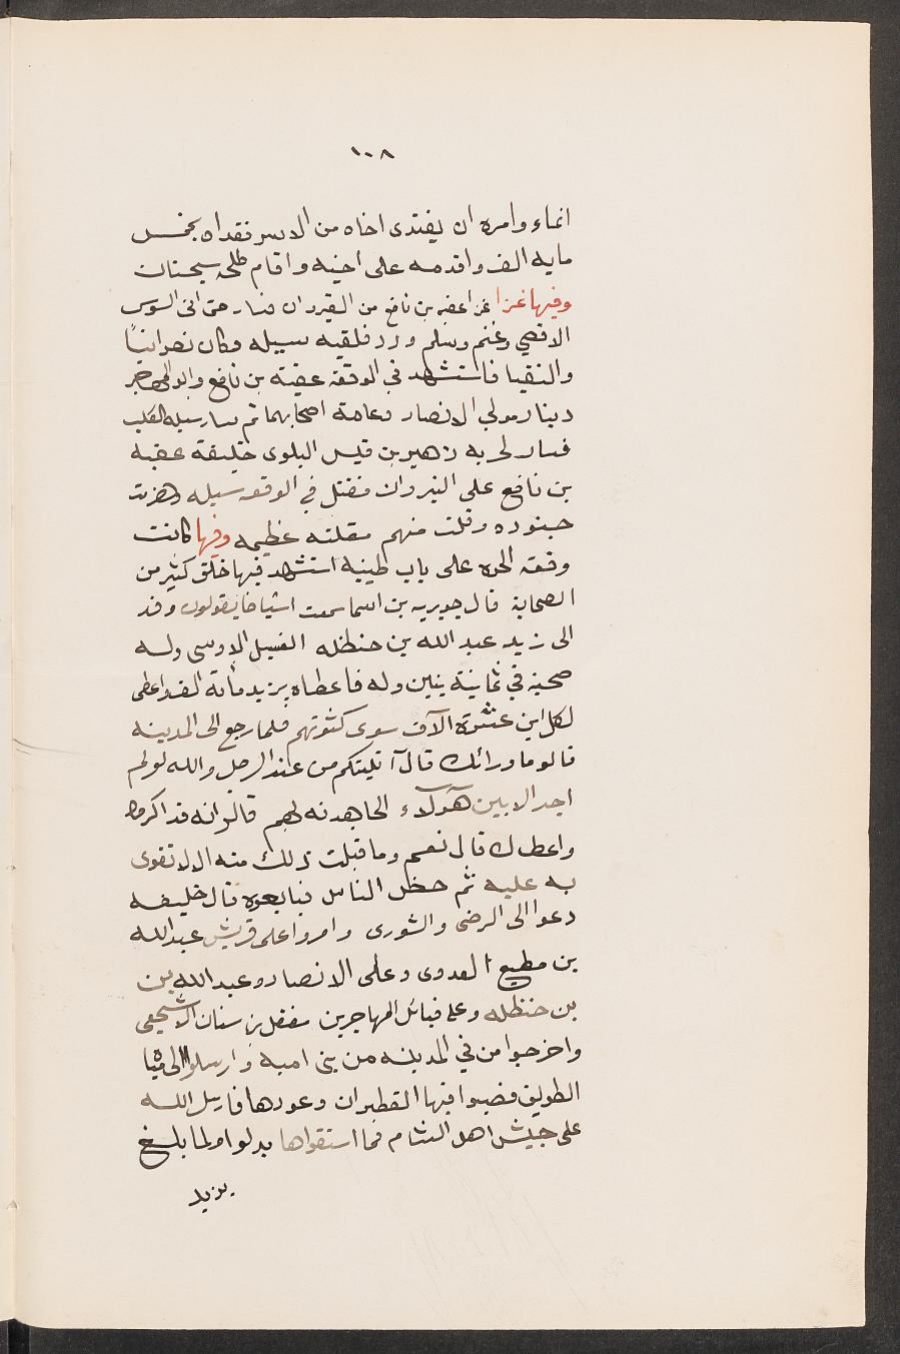 ١٠٨
انماء وامره ان يفتدى اخاه من الاسر ففداه بخمس
مايه الف واقدمه على اخيه واقام طلحه سجستان
وفيها غزا عقبه بن نافع من القيروان فسار حتى اتى السوس
الاقصي وغنم وسلم ورد فلقيه سيله وكان نصرانيًا
والتقيا فاستشهد في الوقعة عقبة بن نافع وابو المهاجر
دينار مولي الانصار وعامة اصحابهما ثم سار سيله
فسار لحربه زهير بن قيس البلوى خليفة عقبه
بن نافع على القيروان فقتل في الوقعه سيله وهزمت
جنوده وقلت منهم مقلته عظيمه وفيها كانت
وقعة الحره على باب طيبه استشهد فيها خلق كثير من
الصحابة قال جويريه بن اسما سمعت اشياخا يقولون وفد
الى زيد عبد الله بن حنظله الغسيل الاوسى وله
صحبة في ثمانية بنين وله فاعطاه يزيد مائة الف واعطى
لكل ابن عشرة الآف سوى كثوتهم فلما رجع الى المدينه
قالو ما ورائك قال آتليتكم من عند الرجل والله لو لم
اجد الا بين هؤلآء الجاهدنه لهم قالو انه قد اكرمك
واعطاك قال نعم وما قبلت ذلك منه الا لاتقوى
به عليه ثم حض الناس فبايعوه قال خليفه
دعوا الى الرضى والشورى وامروا على قريش عبد الله
بن مطيع العدوى وعلى الانصار وعبد الله بن
بن حنظله وعلى قبائل المهاجرين معقل بن سنان الاشجعى
واخرجوا من في المدينه من بنى اميه وارسلوا الى مياه
الطريق فصبوا فيها القطران وعورها فارسل الله
على جيش اهل الشام فما استقواها بدلو اولما بلغ
يزيد